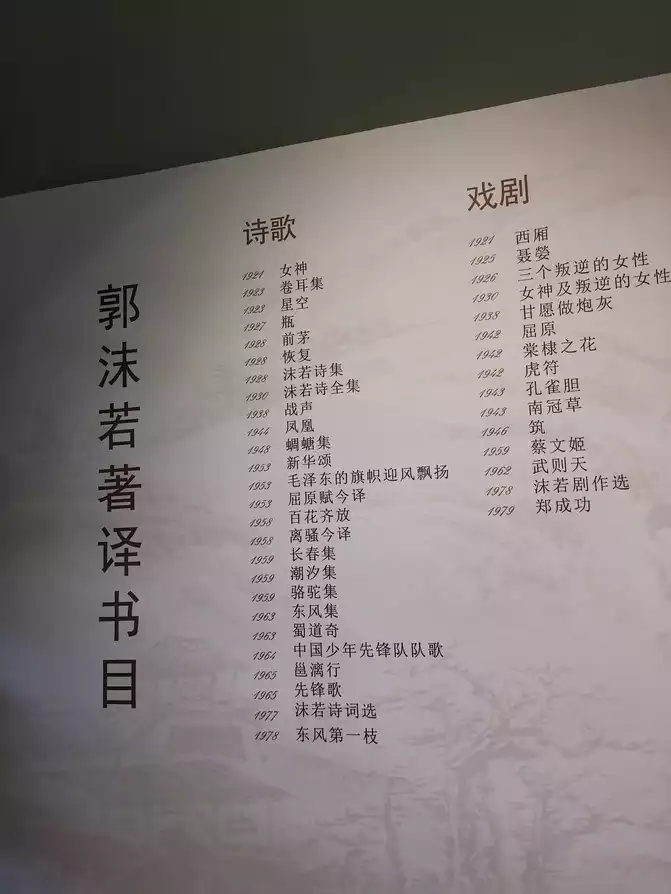 郭沫若著译书目
诗歌
1921 女神
1923 卷耳集
1923 星空
1927 瓶
1928 前茅
1928 恢复
1928 沫若诗集
1930 沫若诗全集
1938 战声
1944 凤凰
1948 蜩螗集
1953 新华颂
1953 毛泽东的旗帜迎风飘扬
1953 屈原赋今译
1958 百花齐放
1958 离骚今译
1959 长春集
1959 潮汐集
1959 骆驼集
1963 东风集
1963 蜀道奇
1964 中国少年先锋队队歌
1965 邕漓行
1965 先锋歌
1977 沫若诗词选
1978 东风第一枝
戏剧
1921 西厢
1925 聂嫈
1926 三个叛逆的女性
1930 女神及叛逆的女性
1938 甘愿做炮灰
1942 屈原
1942 棠棣之花
1942 虎符
1943 孔雀胆
1943 南冠草
1946 筑
1959 蔡文姬
1962 武则天
1978 沫若剧作选
1979 郑成功